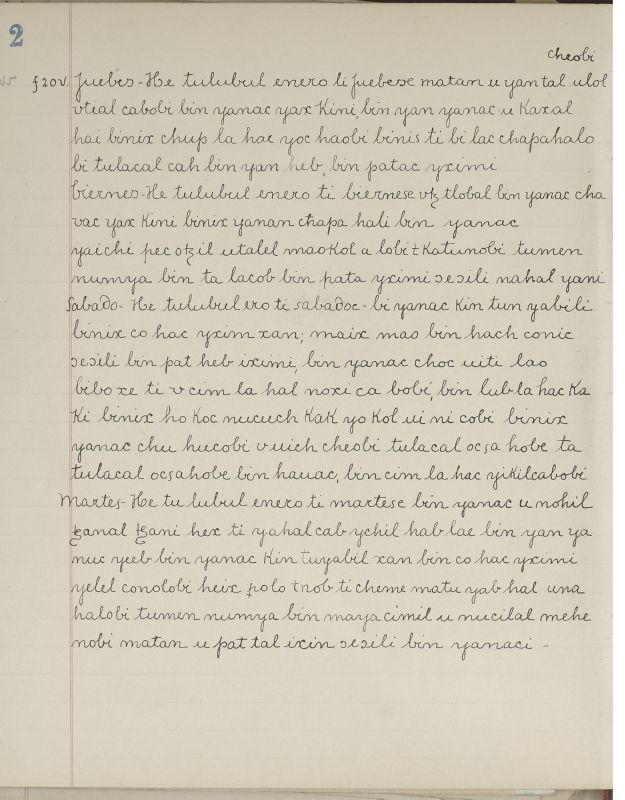 2
cheobi
f20v. Juebes - He tulubul enero li juebese matan u yantal ulol
vtial cabobi bin yanac yax Kini, bin yan yanac u Kaxal
hai binix chup la hac yoc haobi binis ti bi lac chapahalo
bi tulacal cah bin yan heb, bin patac yximi
biernes - He tulubul enero ti biernese vtz tlobal bin yanac cha
vac yax Kini binix yanan chapa hali bin yanac
yaichi pec otzil utalel maoKol a lobi t Katunobi tumen
numya bin ta lacob bin pata yximi sesili nahal yani
Sabado - He tulubul ero ti sabadoe - bi yanac Kin tun yabili
binix co hac yxim xan; maix mao bin hach conic
sesili bin pat heb iximi, bin yanac choc uiti lao
biboxe ti v cim la hal noxi ca bobi, bin lub la hac Ka
Ki binix ho Koc nucuch KaK yo Kol ui ni cobi binix
yanac chu hucobi v uich cheobi tulacal ocsa hobe ta
tulacal ocsahobe bin hauac, bin cim la hac yiKilcabobi
Martes - Hoe tu lubul enero ti martese bin yanac u nohil
tzanal tzani hex ti yahal cab ychil hab lae bin yan ya
nuc yeeb bin yanac Kin tuyabil xan bin co hac yximi
yelel conolobi heix polo tnob ti cheme matu yab hal una
halobi tumen numya bin maya cimil u nucilal mehe
nobi matan u pat tal ixin sesili bin yanaci -